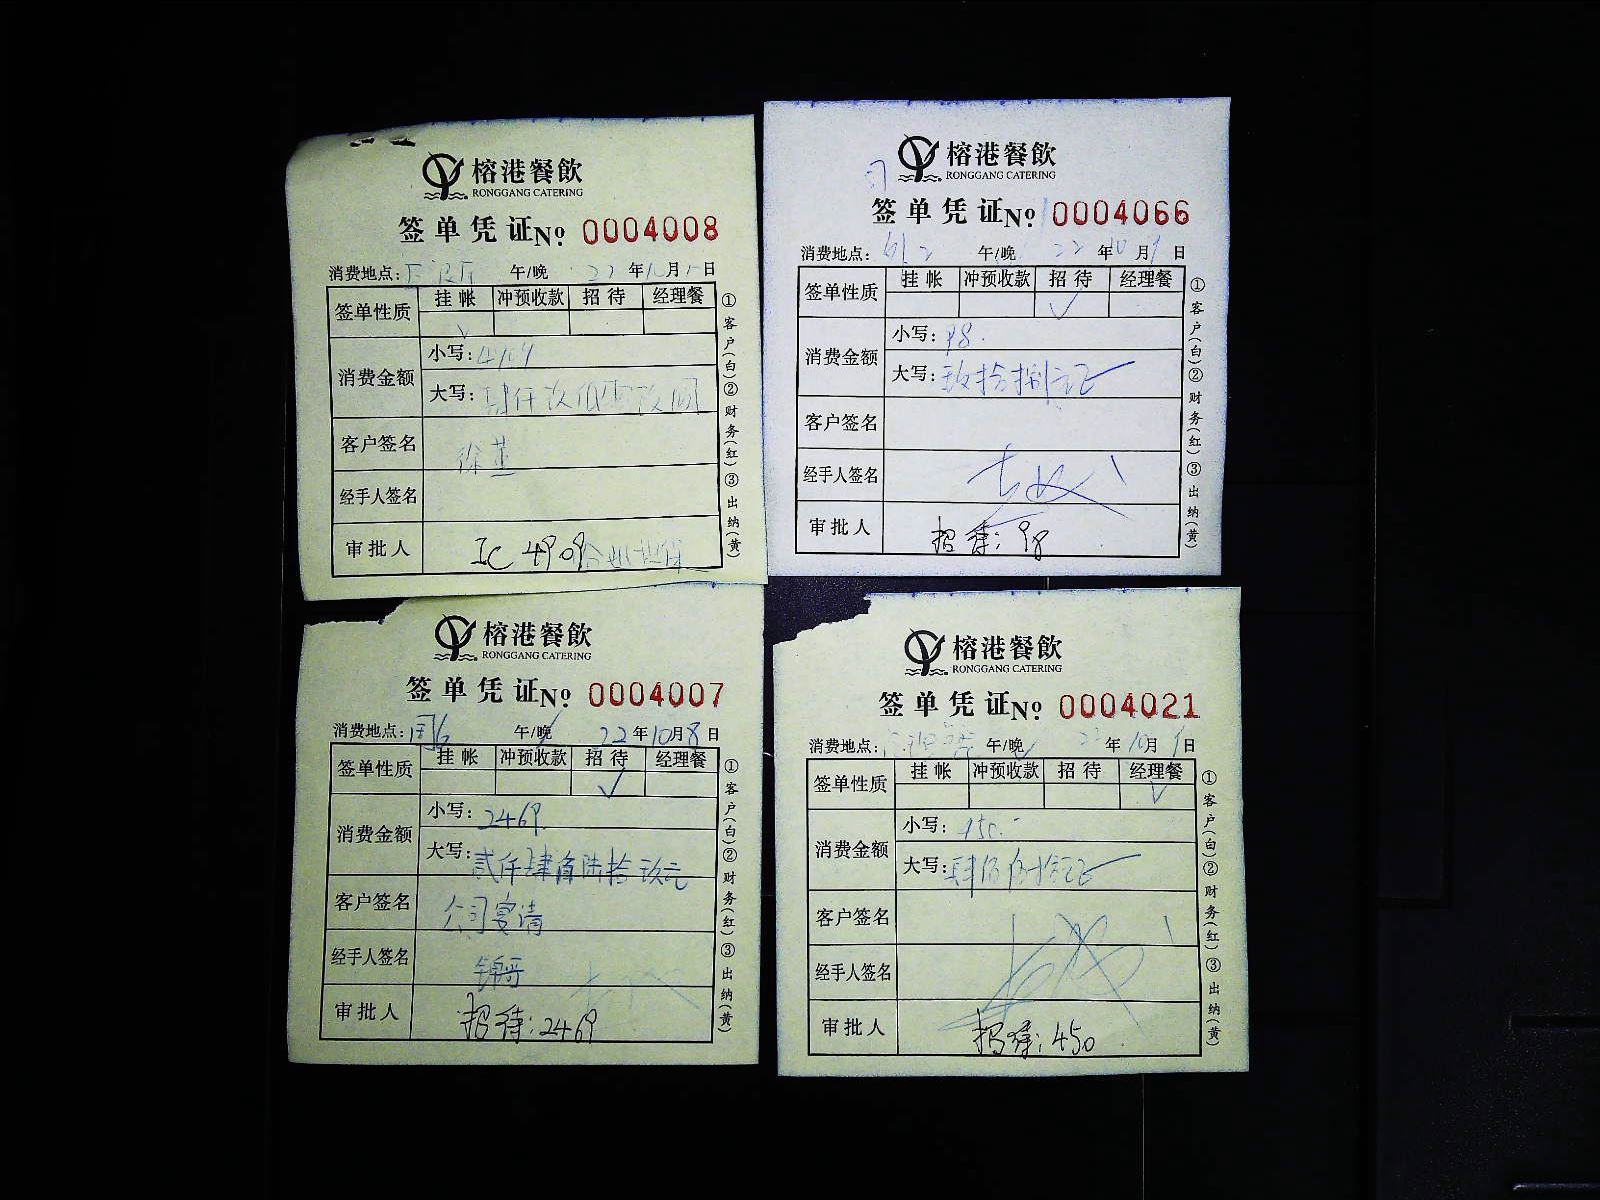 榕港餐飲
RONGGANG CATERING
签单凭证 No 0004008
消费地点: 午/晚 22年10月 日
签单性质 挂帐 冲预收款 招待 经理餐
√
消费金额 小写:4909
大写:肆仟玖佰零玖圆
客户签名 徐
经手人签名
审批人 IC 4909
①客户(白)②财务(红)③出纳(黄)
榕港餐飲
RONGGANG CATERING
签单凭证 No 0004066
消费地点: 午/晚 22年10月9日
签单性质 挂帐 冲预收款 招待 经理餐
√
消费金额 小写:98.
大写:玖拾捌元正
客户签名
经手人签名
审批人 招待:98
①客户(白)②财务(红)③出纳(黄)
榕港餐飲
RONGGANG CATERING
签单凭证 No 0004007
消费地点: 午/晚 22年10月8日
签单性质 挂帐 冲预收款 招待 经理餐
√
消费金额 小写:2469.
大写:贰仟肆佰陆拾玖元
客户签名 公司宴请
经手人签名 锦哥
审批人 招待:2469
①客户(白)②财务(红)③出纳(黄)
榕港餐飲
RONGGANG CATERING
签单凭证 No 0004021
消费地点: 午/晚 22年10月9日
签单性质 挂帐 冲预收款 招待 经理餐
√
消费金额 小写:450.-
大写:肆佰伍拾元正
客户签名
经手人签名
审批人 招待:450
①客户(白)②财务(红)③出纳(黄)